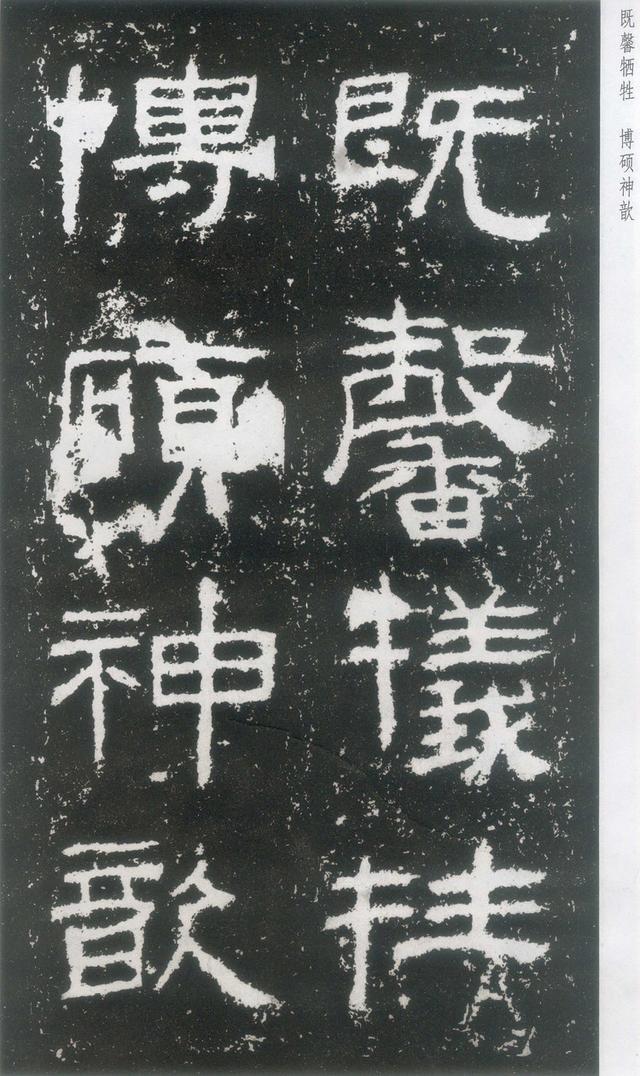 既馨牺牲 博硕神歆
既馨犠牲
博碩神歆